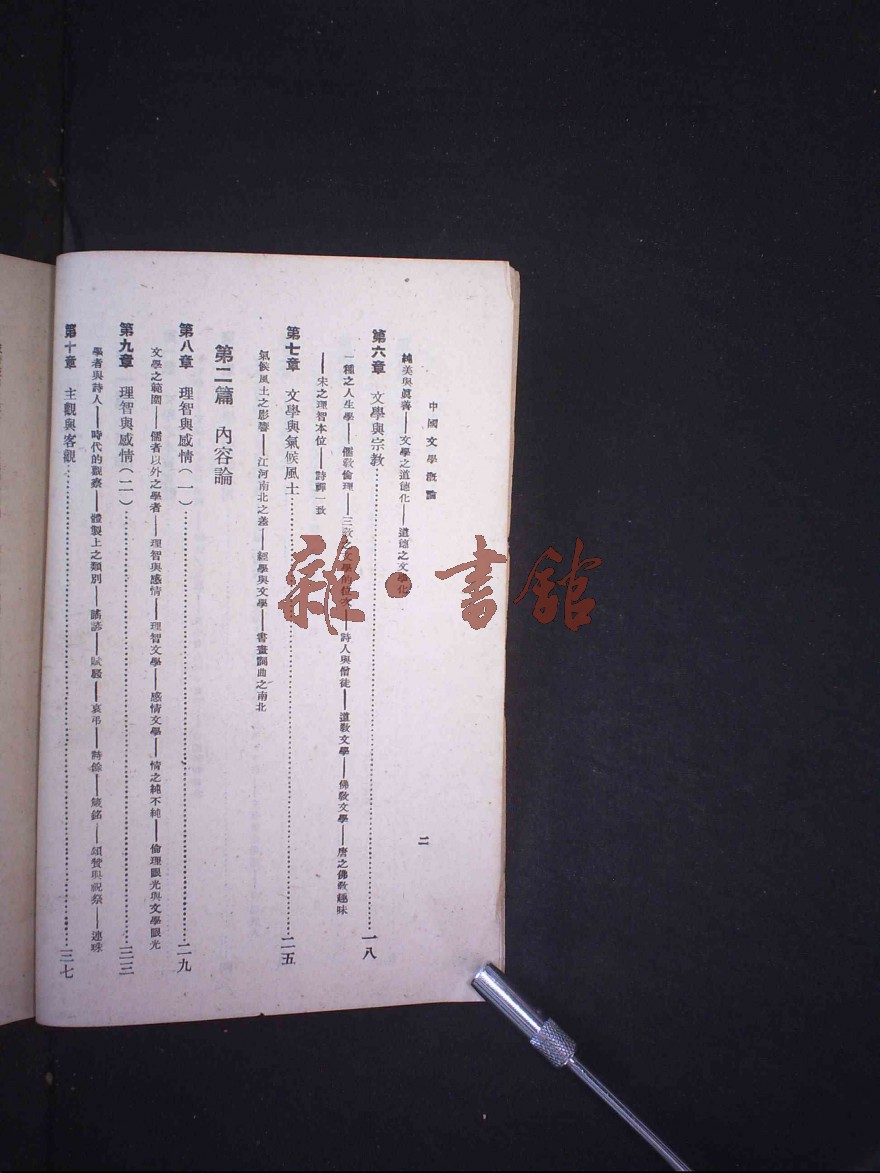 中國文學概論
二
純美與眞善——文學之道德化——道德之文學化
第六章　文學與宗教…………一八
一種之人生學——儒敎倫理——三敎文學的位次——詩人與僧徒——道敎文學——佛敎文學——唐之佛敎趣味
——宋之理智本位——詩禪一致
第七章　文學與氣候風土…………二五
氣候風土之影響——江河南北之差——經學與文學——書畫詞曲之南北
第二篇　內容論
第八章　理智與感情（一）…………二九
文學之範圍——儒者以外之學者——理智與感情——理智文學——感情文學——情之純不純——倫理眼光與文學眼光
第九章　理智與感情（二）…………三三
學者與詩人——時代的觀察——體製上之類別——謠諺——賦騷——哀弔——詩餘——箴銘——頌贊與祝祭——連珠
第十章　主觀與客觀…………三七
雜·書館